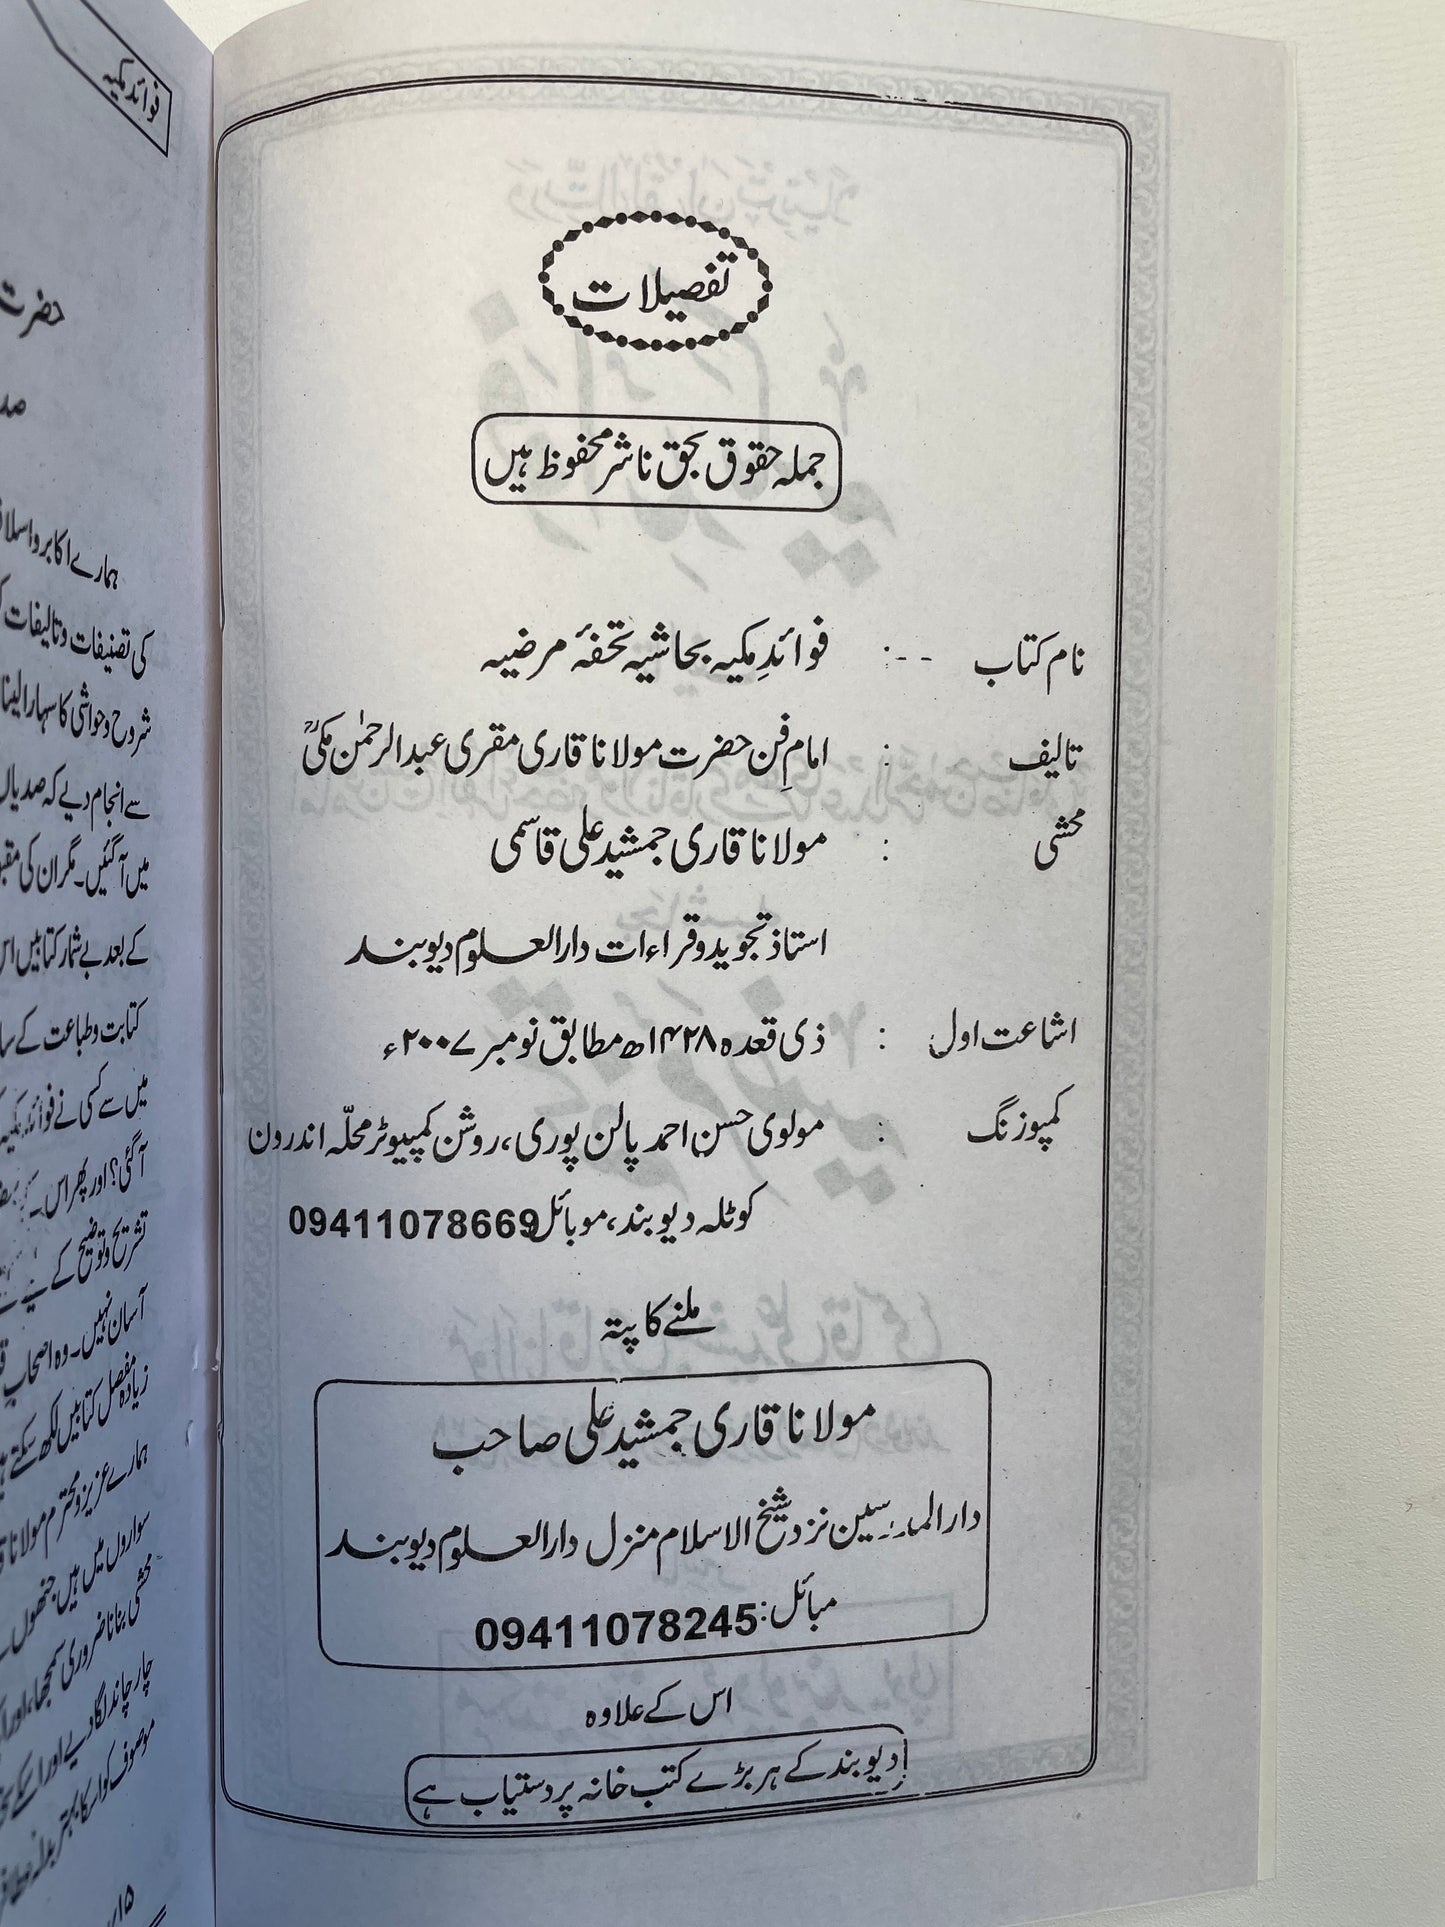 تفصیلات
جملہ حقوق بحق ناشر محفوظ ہیں
نام کتاب --: فوائدِ مکیہ بحاشیہ تحفۂ مرضیہ
تالیف : امامِ فن حضرت مولانا قاری مقری عبدالرحمٰن مکیؒ
محشی : مولانا قاری جمشید علی قاسمی
استاذ تجوید و قراءات دارالعلوم دیوبند
اشاعت اول : ذی قعدہ ۱۴۲۸ھ مطابق نومبر ۲۰۰۷ء
کمپوزنگ : مولوی حسن احمد پالن پوری، روشن کمپیوٹر محلّہ اندرون
کوٹلہ دیوبند، موبائل 09411078669
ملنے کا پتہ
مولانا قاری جمشید علی صاحب
دارالمدرسین نزد شیخ الاسلام منزل دارالعلوم دیوبند
مبائل: 09411078245
اس کے علاوہ
دیوبند کے ہر بڑے کتب خانہ پر دستیاب ہے
فوائد مکیہ
حضرت
ہمارے اکابر و اسلاف
کی تصنیفات و تالیفات
شروح و حواشی کا سہارا لینا
سے انجام دیے کہ صدیاں
میں آگئیں۔ مگر ان کی
کے بعد بے شمار کتابیں اس
کتابت و طباعت کے
میں سے کسی نے فوائد مکیہ
آگئی؟ اور پھر اس
تشریح و توضیح کے لیے
آسان نہیں۔ وہ اصحاب
زیادہ مفصل کتابیں لکھ سکتے
ہمارے عزیز و محترم مولانا
سواروں میں ہیں جنھوں
محشی بنانا ضروری سمجھا، اور
چار چاند لگا دیے اور
موصوف کو